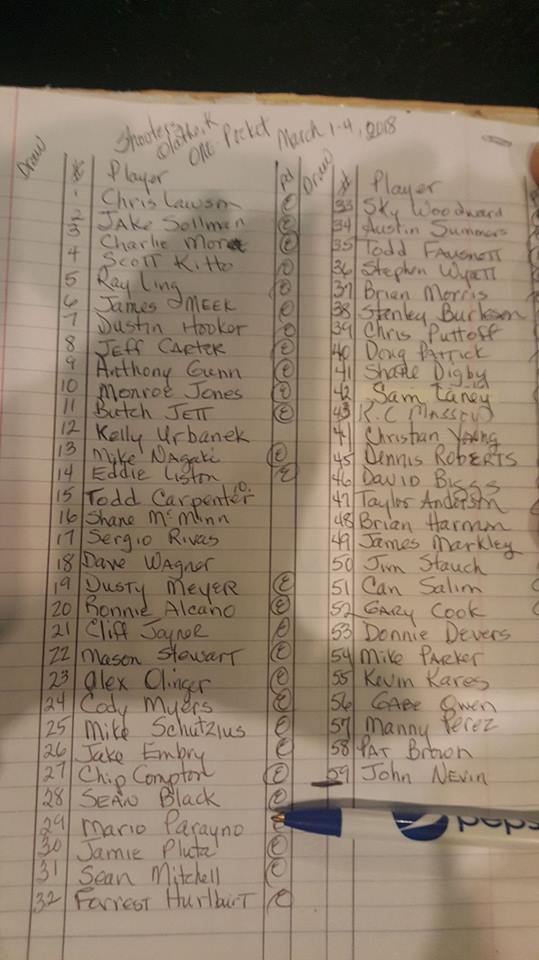 Shooters
Olathe, K
ONE Pocket March 1-4, 2018
Draw # Player pd
1 Chris Lawson
2 JAKE Sollman
3 Charlie Morat
4 SCOTT Kitto
5 Ray Ling
6 James MEEK
7 Dustin Hooker
8 JEFF CARTER
9 Anthony Gunn
10 Monroe Jones
11 Butch JETT
12 Kelly Urbanek
13 Mike NAgaki
14 Eddie Liston
15 Todd Carpenter 10.
16 Shane McMinn
17 Sergio Rivas
18 Dave WAgner
19 Dusty MeyeR
20 Ronnie Alcano
21 Cliff Joyner
22 Mason Stewart
23 Alex Olinger
24 Cody Myers
25 Mike Schutzius
26 Jake Embry
27 Chip Compton
28 SEAN Black
29 Mario Parayno
30 Jamie Pluta
31 Sean Mitchell
32 Forrest Hurlburt
Draw # Player
33 Sky Woodward
34 Austin Summers
35 Todd FAUSNETT
36 Stephen Wyatt
37 Brian Morris
38 Stanley Burleson
39 Chris Puttoff
40 Doug PATTICK
41 Shane Digby
42 Sam Laney
43 R.C Massey
44 Christian Young
45 Dennis RobERTS
46 DAVID BIGGS
47 Taylor Anderson
48 Brian Harmon
49 James Markley
50 Jim Stauch
51 Can Salim
52 GARY Cook
53 Donnie Devers
54 Mike PARKer
55 Kevin Kares
56 GABE Owen
57 Manny Perez
58 PAT Brown
59 John NEVIN
peps